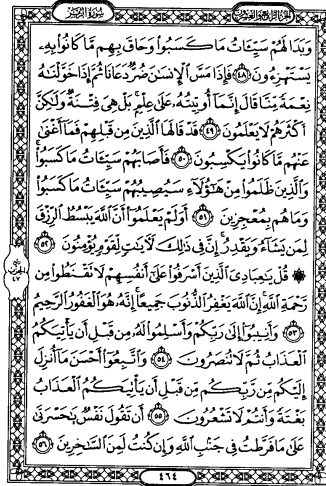 الجزء الرابع والعشرون
سورة الزمر
وَبَدَا لَهُمْ سَيِّـَٔاتُ مَا كَسَبُوا۟ وَحَاقَ بِهِم مَّا كَانُوا۟ بِهِۦ
يَسْتَهْزِءُونَ ٤٨ فَإِذَا مَسَّ ٱلْإِنسَـٰنَ ضُرٌّ دَعَانَا ثُمَّ إِذَا خَوَّلْنَـٰهُ
نِعْمَةً مِّنَّا قَالَ إِنَّمَآ أُوتِيتُهُۥ عَلَىٰ عِلْمٍۭ بَلْ هِىَ فِتْنَةٌ وَلَـٰكِنَّ
أَكْثَرَهُمْ لَا يَعْلَمُونَ ٤٩ قَدْ قَالَهَا ٱلَّذِينَ مِن قَبْلِهِمْ فَمَآ أَغْنَىٰ
عَنْهُم مَّا كَانُوا۟ يَكْسِبُونَ ٥٠ فَأَصَابَهُمْ سَيِّـَٔاتُ مَا كَسَبُوا۟
وَٱلَّذِينَ ظَلَمُوا۟ مِنْ هَـٰٓؤُلَآءِ سَيُصِيبُهُمْ سَيِّـَٔاتُ مَا كَسَبُوا۟
وَمَا هُم بِمُعْجِزِينَ ٥١ أَوَلَمْ يَعْلَمُوٓا۟ أَنَّ ٱللَّهَ يَبْسُطُ ٱلرِّزْقَ
لِمَن يَشَآءُ وَيَقْدِرُ إِنَّ فِى ذَٰلِكَ لَـَٔايَـٰتٍ لِّقَوْمٍ يُؤْمِنُونَ ٥٢
۞ قُلْ يَـٰعِبَادِىَ ٱلَّذِينَ أَسْرَفُوا۟ عَلَىٰٓ أَنفُسِهِمْ لَا تَقْنَطُوا۟ مِن
رَّحْمَةِ ٱللَّهِ إِنَّ ٱللَّهَ يَغْفِرُ ٱلذُّنُوبَ جَمِيعًا إِنَّهُۥ هُوَ ٱلْغَفُورُ ٱلرَّحِيمُ
٥٣ وَأَنِيبُوٓا۟ إِلَىٰ رَبِّكُمْ وَأَسْلِمُوا۟ لَهُۥ مِن قَبْلِ أَن يَأْتِيَكُمُ
ٱلْعَذَابُ ثُمَّ لَا تُنصَرُونَ ٥٤ وَٱتَّبِعُوٓا۟ أَحْسَنَ مَآ أُنزِلَ
إِلَيْكُم مِّن رَّبِّكُم مِّن قَبْلِ أَن يَأْتِيَكُمُ ٱلْعَذَابُ
بَغْتَةً وَأَنتُمْ لَا تَشْعُرُونَ ٥٥ أَن تَقُولَ نَفْسٌ يَـٰحَسْرَتَىٰ
عَلَىٰ مَا فَرَّطتُ فِى جَنۢبِ ٱللَّهِ وَإِن كُنتُ لَمِنَ ٱلسَّـٰخِرِينَ ٥٦
٤٦٤